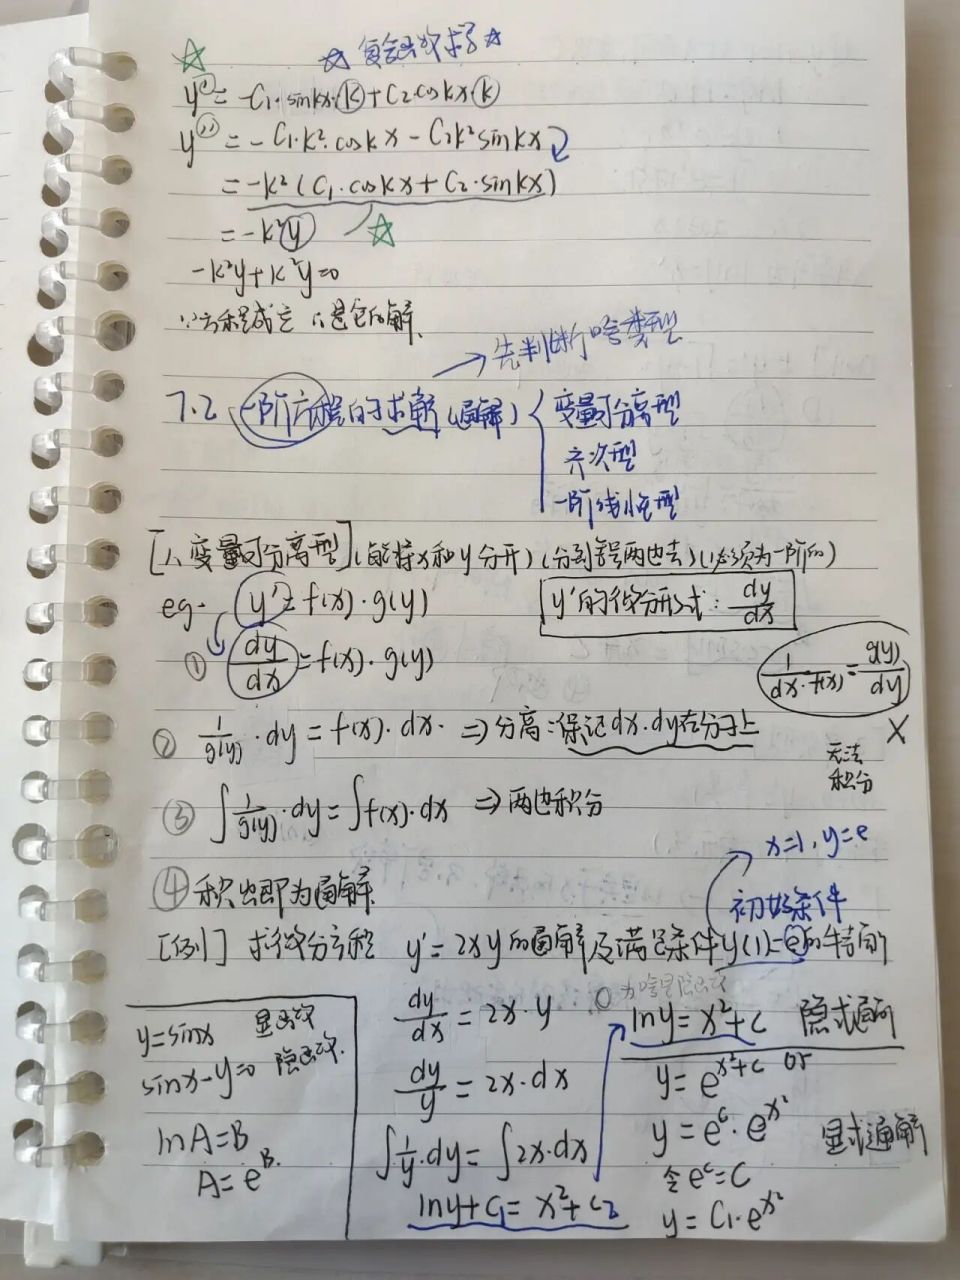 ☆ 复合函数求导 ☆
y' = -C₁·sinkx·k + C₂coskx k
y'' = -C₁·k²·coskx - C₂k²sinkx
= -k²(C₁·coskx + C₂·sinkx)
= -k²y
-k²y + k²y = 0
∵方程成立 ∴是它的解.
→ 先判断啥类型
7.2 一阶方程的求解(通解)
变量可分离型
齐次型
一阶线性型
[1、变量可分离型](能将x和y分开)(分到等号两边去)(必须为一阶的)
eg. y' = f(x)·g(y)
y'的微分形式: dy/dx
① dy/dx = f(x)·g(y)
1/(dx·f(x)) = g(y)/dy
×
无法
积分
② 1/g(y)·dy = f(x)·dx. ⇒ 分离:保证dx.dy在分子上
③ ∫1/g(y)·dy = ∫f(x)·dx ⇒ 两边积分
x=1, y=e
④ 积出即为通解.
初始条件
[例1] 求微分方程 y' = 2xy的通解及满足条件y(1)=e的特解
y=sinx 显函数
sinx-y=0 隐函数.
lnA=B
A=e^B.
dy/dx = 2x·y
dy/y = 2x·dx
∫1/y·dy = ∫2x·dx
lny+C₁ = x²+C₂
为啥是隐函数
lny = x²+C 隐式通解
y = e^(x²+C) or
y = e^C·e^(x²)
显式通解
令e^C=C
y = C₁·e^(x²)